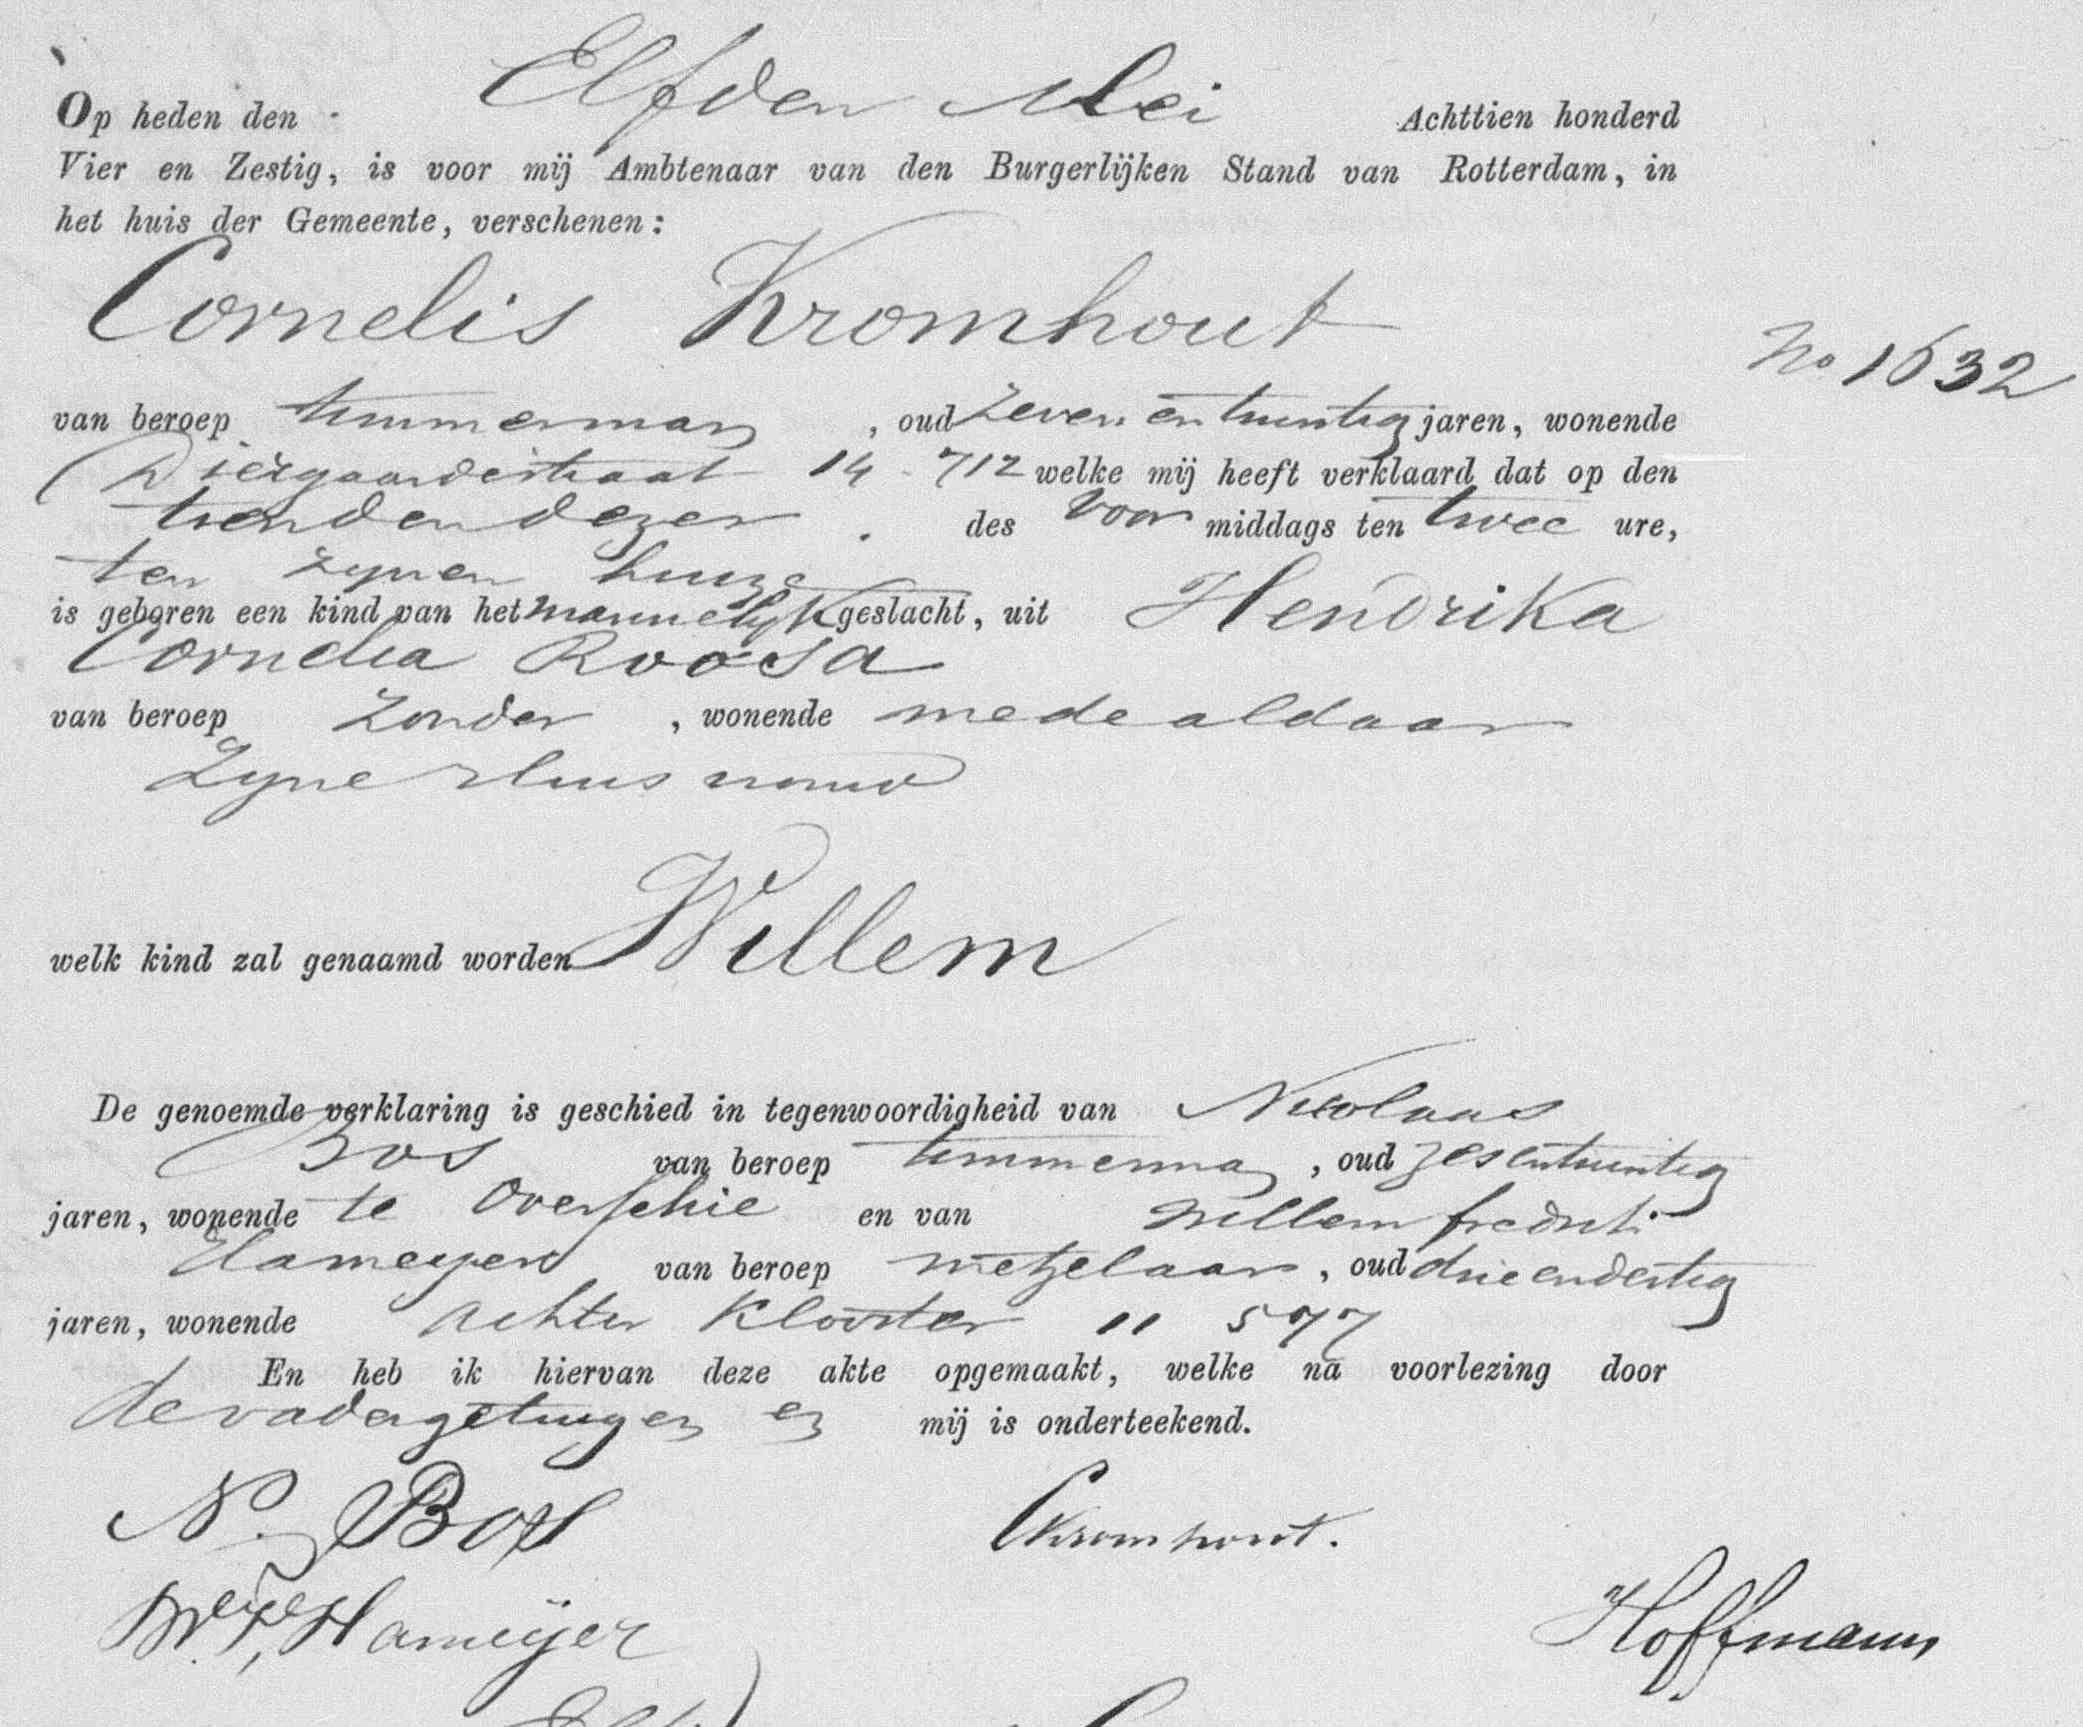 Op heden den Elfden Mei Achttien honderd
Vier en Zestig, is voor mij Ambtenaar van den Burgerlijken Stand van Rotterdam, in
het huis der Gemeente, verschenen:
Cornelis Kromhout
No 1632
van beroep timmerman, oud zeven en twintig jaren, wonende
Diergaardestraat 14 712 welke mij heeft verklaard dat op den
tienden dezer . des voor middags ten twee ure,
ten zynen huize
is geboren een kind van het mannelyk geslacht, uit Hendrika
Cornelia Roosa
van beroep zonder, wonende mede aldaar
zyne Huisvrouw
welk kind zal genaamd worden Willem
De genoemde verklaring is geschied in tegenwoordigheid van Nicolaas
Bos van beroep timmerman, oud zesentwintig
jaren, wonende te Overschie en van Willem
Hameyer van beroep metzelaar, oud drieendertig
jaren, wonende achter Klooster 11 577
En heb ik hiervan deze akte opgemaakt, welke na voorlezing door
de vader getuigen en mij is onderteekend.
N. Bos
CKromhout.
Wm Fk Hameijer
Hoffmann